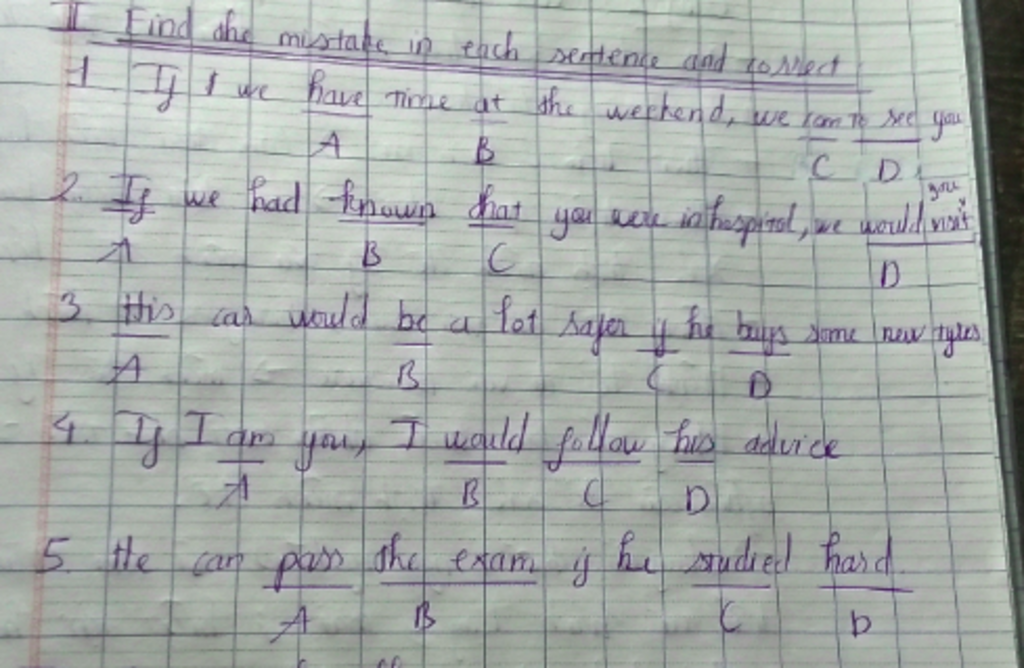 II Find the mistake in each sentence and correct
1 If we have time at the weekend, we can to see you
A B C D
2. If we had known that you were in hospital, we would visit you
A B C D
3 His car would be a lot safer if he buys some new tyres
A B C D
4. If I am you, I would follow his advice
A B C D
5. He can pass the exam if he studied hard
A B C D